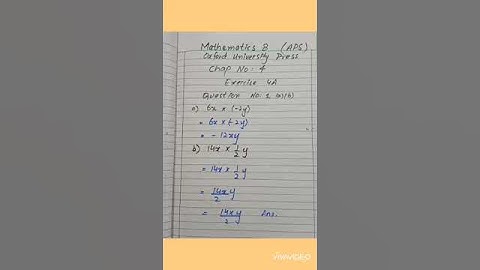 Mathematics 8 (APS)
Oxford University Press
Chap No: 4
Exercise 4A
Question No: 1 (a)(b)
a) 6x × (-2y)
= 6x × (-2y)
= - 12xy
b) 14x × 1/2 y
= 14x × 1/2 y
= 14x/2 y
= 14xy/2 Ans.
VivaVideo